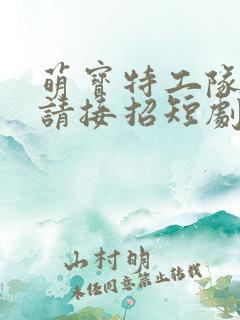 萌寶特工隊
請接招短劇
山村明
未任同意禁止转载